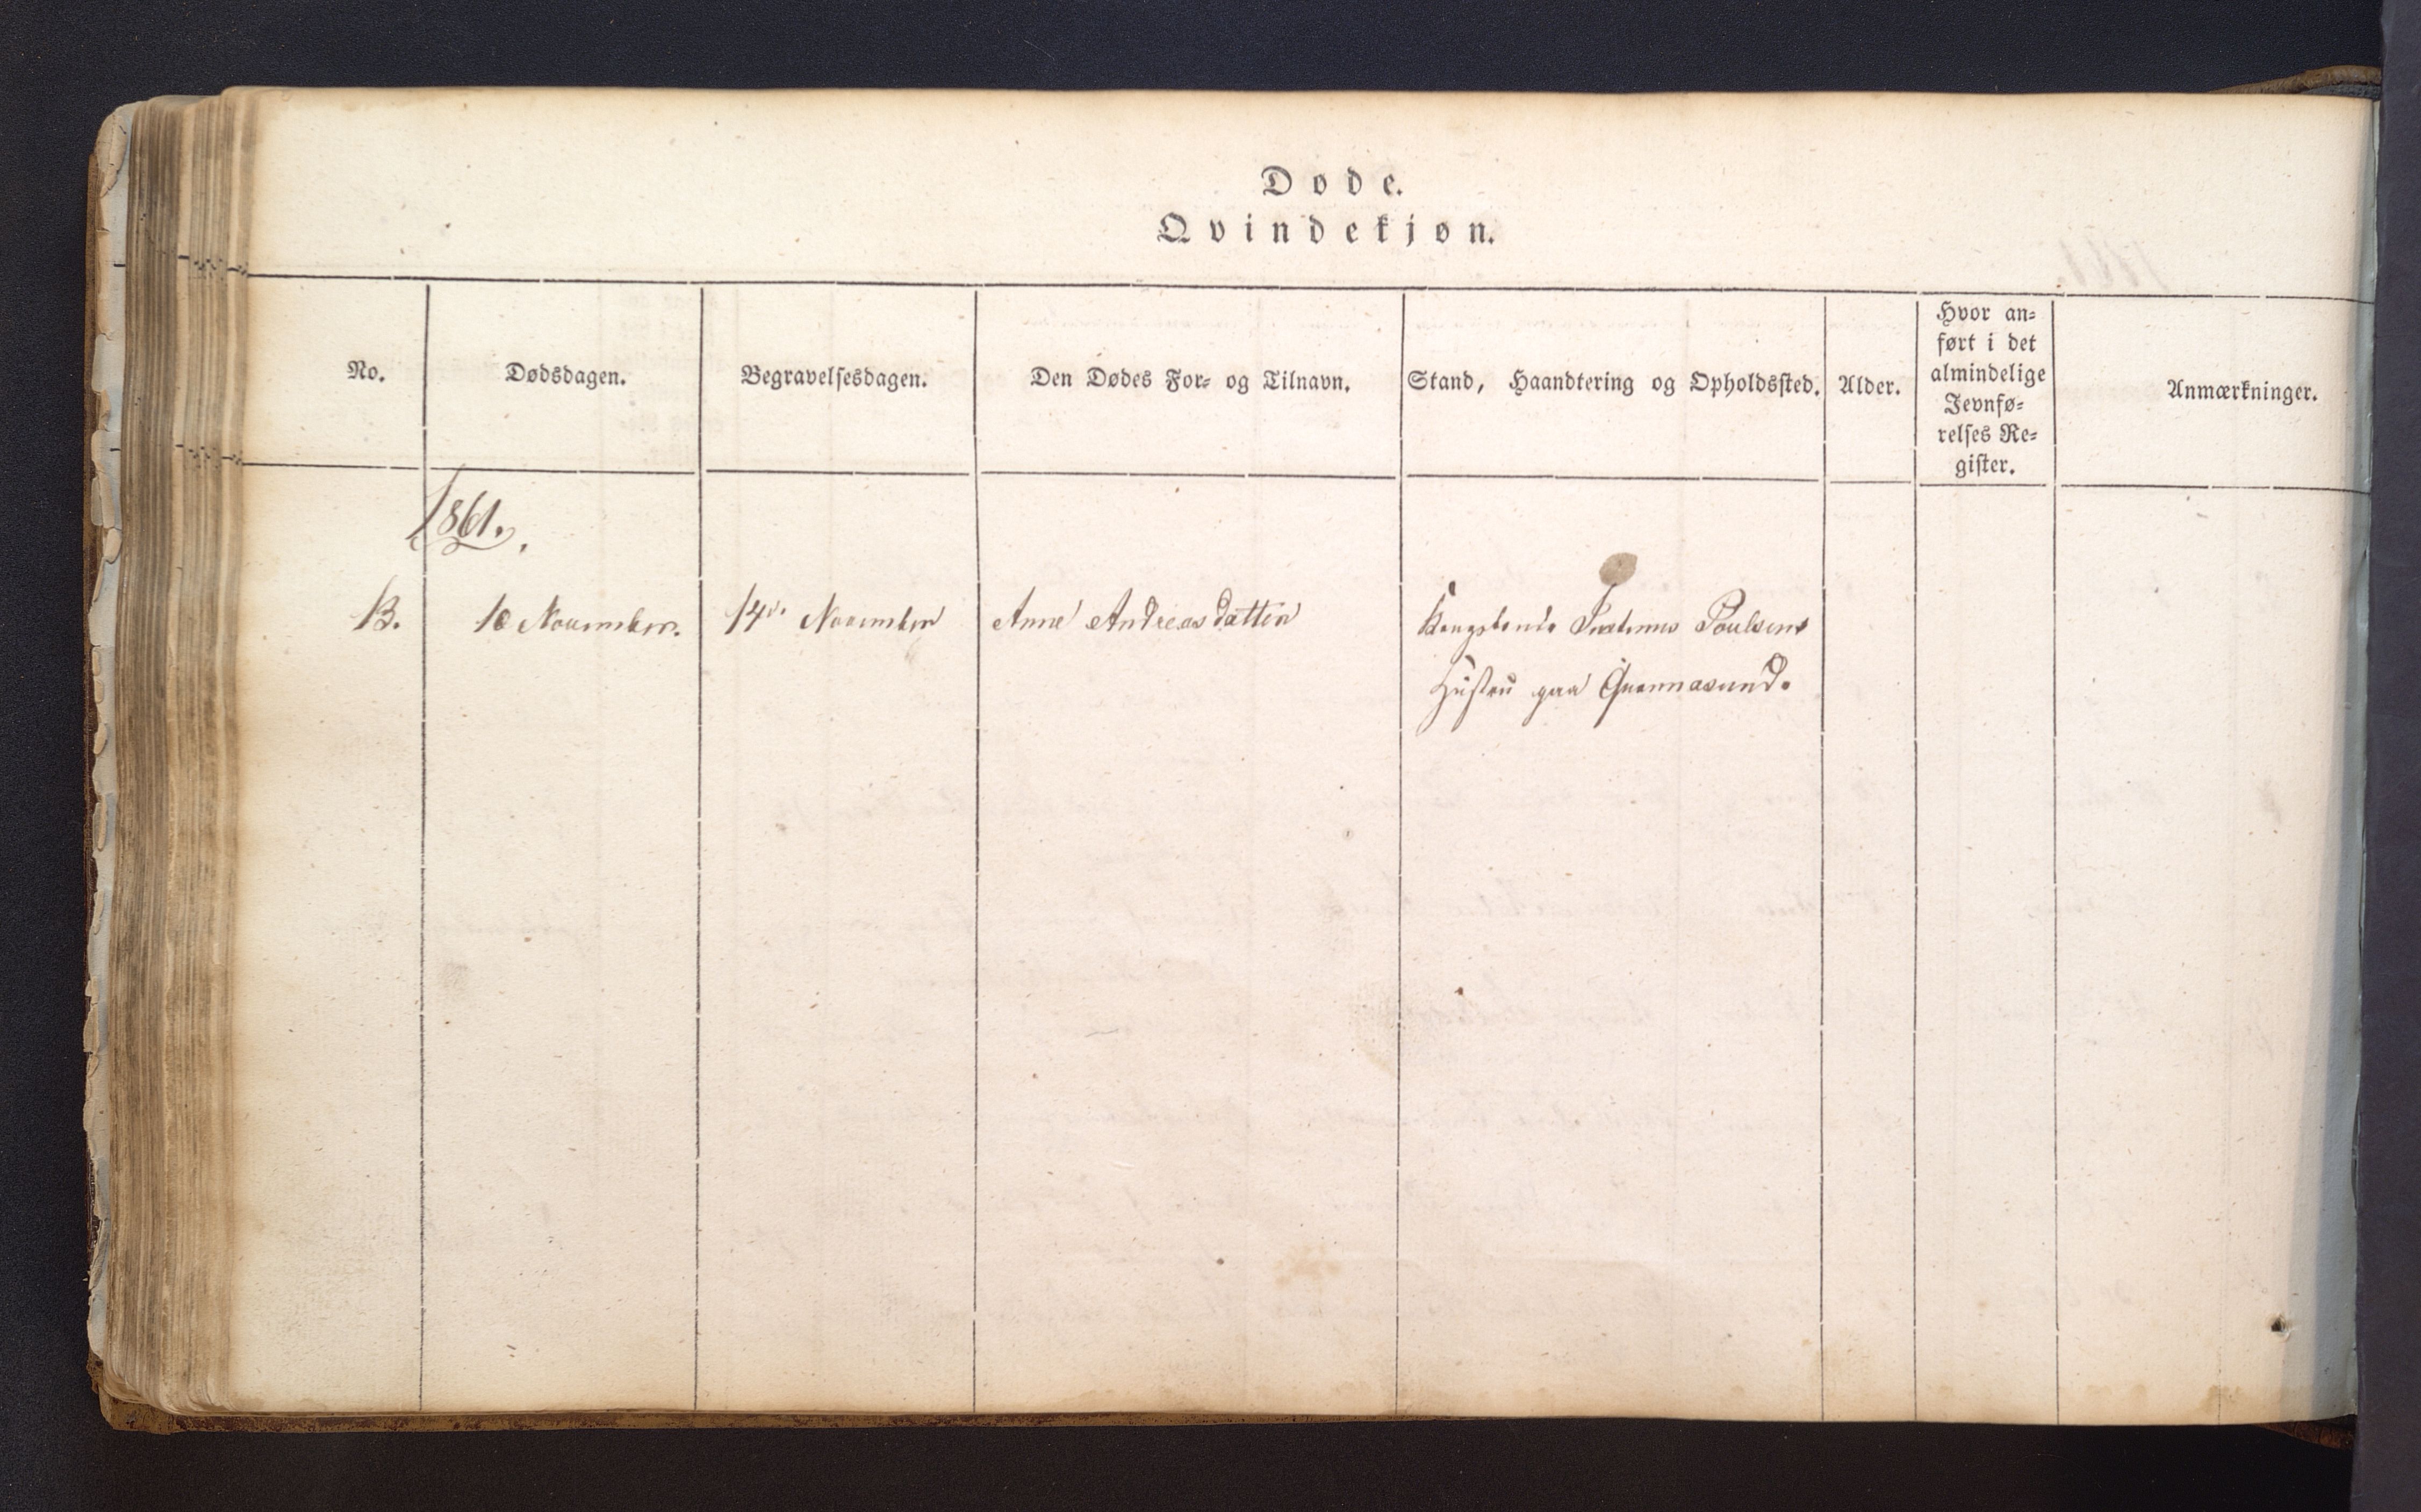 Døde.
Qvindekjøn.
No.
Dødsdagen.
Begravelsesdagen.
Den Dødes For- og Tilnavn.
Stand, Haandtering og Opholdssted.
Alder.
Hvor an-
ført i det
almindelige
Jevnfø-
relses Re-
gister.
Anmærkninger.
1861.
13. 10 November. 14de November Anne Andreasdatter Kongsbonde Poulsens
Hustru paa Qvannasund.